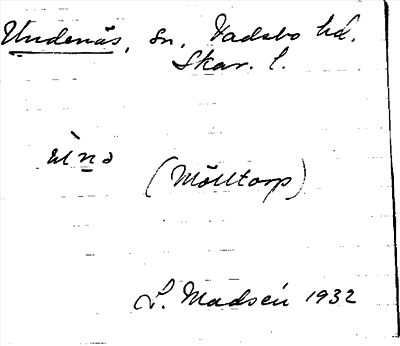 Undenäs, sn. Vadsbo hd.
Skar. l.
(Mölltorp)
L. Madsén 1932